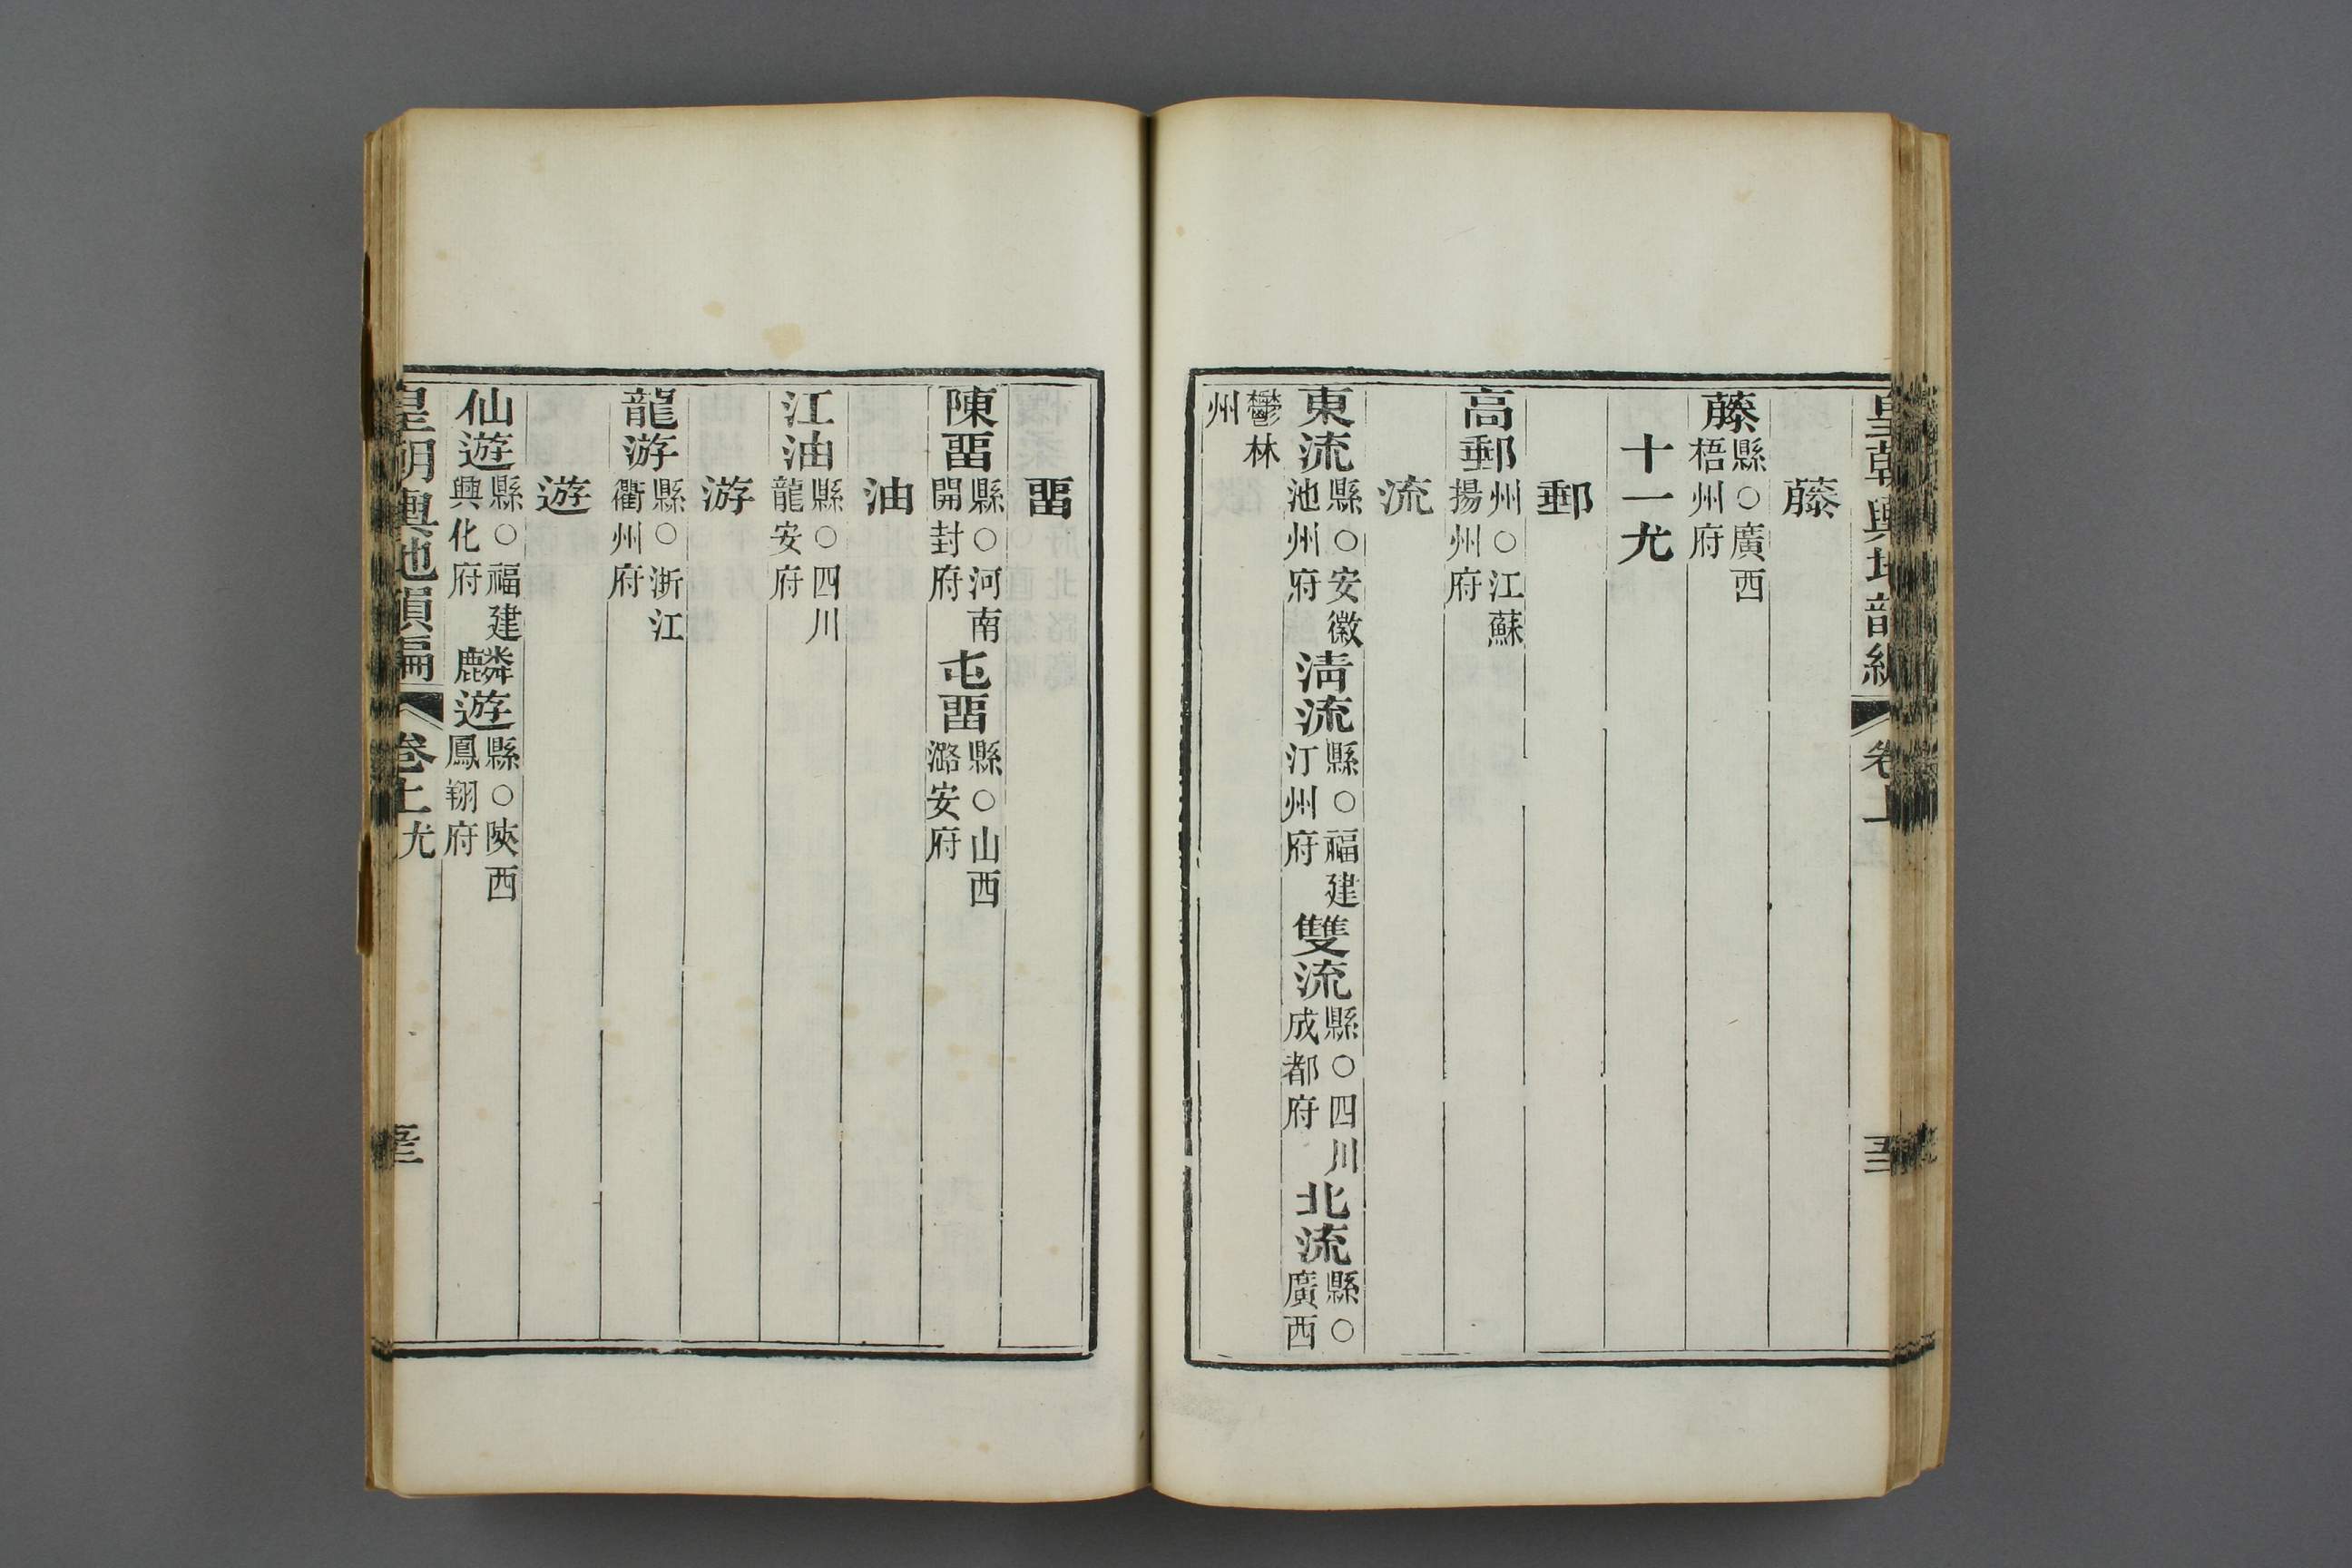 皇朝輿地韻編 卷上
藤
藤縣○廣西梧州府
十一尤
郵
高郵州○江蘇揚州府
流
東流縣○安徽池州府 淸流縣○福建汀州府 雙流縣○四川成都府 北流縣○廣西
鬱林州
畱
陳畱縣○河南開封府 屯畱縣○山西潞安府
油
江油縣○四川龍安府
游
龍游縣○浙江衢州府
遊
仙遊縣○福建興化府 麟遊縣○陝西鳳翔府
皇朝輿地韻編 卷上 尤